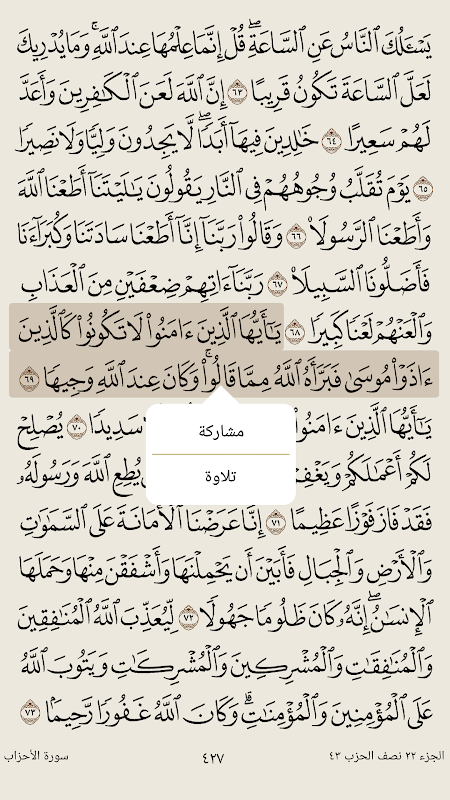 يَسْـَٔلُكَ ٱلنَّاسُ عَنِ ٱلسَّاعَةِۖ قُلْ إِنَّمَا عِلْمُهَا عِندَ ٱللَّهِۚ وَمَا يُدْرِيكَ
لَعَلَّ ٱلسَّاعَةَ تَكُونُ قَرِيبًا ٦٣ إِنَّ ٱللَّهَ لَعَنَ ٱلْكَٰفِرِينَ وَأَعَدَّ
لَهُمْ سَعِيرًا ٦٤ خَٰلِدِينَ فِيهَآ أَبَدًاۖ لَّا يَجِدُونَ وَلِيًّا وَلَا نَصِيرًا
٦٥ يَوْمَ تُقَلَّبُ وُجُوهُهُمْ فِى ٱلنَّارِ يَقُولُونَ يَٰلَيْتَنَآ أَطَعْنَا ٱللَّهَ
وَأَطَعْنَا ٱلرَّسُولَا۠ ٦٦ وَقَالُوا۟ رَبَّنَآ إِنَّآ أَطَعْنَا سَادَتَنَا وَكُبَرَآءَنَا
فَأَضَلُّونَا ٱلسَّبِيلَا۠ ٦٧ رَبَّنَآ ءَاتِهِمْ ضِعْفَيْنِ مِنَ ٱلْعَذَابِ
وَٱلْعَنْهُمْ لَعْنًا كَبِيرًا ٦٨ يَٰٓأَيُّهَا ٱلَّذِينَ ءَامَنُوا۟ لَا تَكُونُوا۟ كَٱلَّذِينَ
ءَاذَوْا۟ مُوسَىٰ فَبَرَّأَهُ ٱللَّهُ مِمَّا قَالُوا۟ۚ وَكَانَ عِندَ ٱللَّهِ وَجِيهًا ٦٩
يَٰٓأَيُّهَا ٱلَّذِينَ ءَامَنُوا۟ سَدِيدًا ٧٠ يُصْلِحْ
مشاركة
لَكُمْ أَعْمَٰلَكُمْ وَيَغْفِرْ يُطِعِ ٱللَّهَ وَرَسُولَهُۥ
تلاوة
فَقَدْ فَازَ فَوْزًا عَظِيمًا ٧١ إِنَّا عَرَضْنَا ٱلْأَمَانَةَ عَلَى ٱلسَّمَٰوَٰتِ
وَٱلْأَرْضِ وَٱلْجِبَالِ فَأَبَيْنَ أَن يَحْمِلْنَهَا وَأَشْفَقْنَ مِنْهَا وَحَمَلَهَا
ٱلْإِنسَٰنُۖ إِنَّهُۥ كَانَ ظَلُومًا جَهُولًا ٧٢ لِّيُعَذِّبَ ٱللَّهُ ٱلْمُنَٰفِقِينَ
وَٱلْمُنَٰفِقَٰتِ وَٱلْمُشْرِكِينَ وَٱلْمُشْرِكَٰتِ وَيَتُوبَ ٱللَّهُ
عَلَى ٱلْمُؤْمِنِينَ وَٱلْمُؤْمِنَٰتِۗ وَكَانَ ٱللَّهُ غَفُورًا رَّحِيمًۢا ٧٣
الجزء ٢٢ نصف الحزب ٤٣ ٤٢٧ سورة الأحزاب